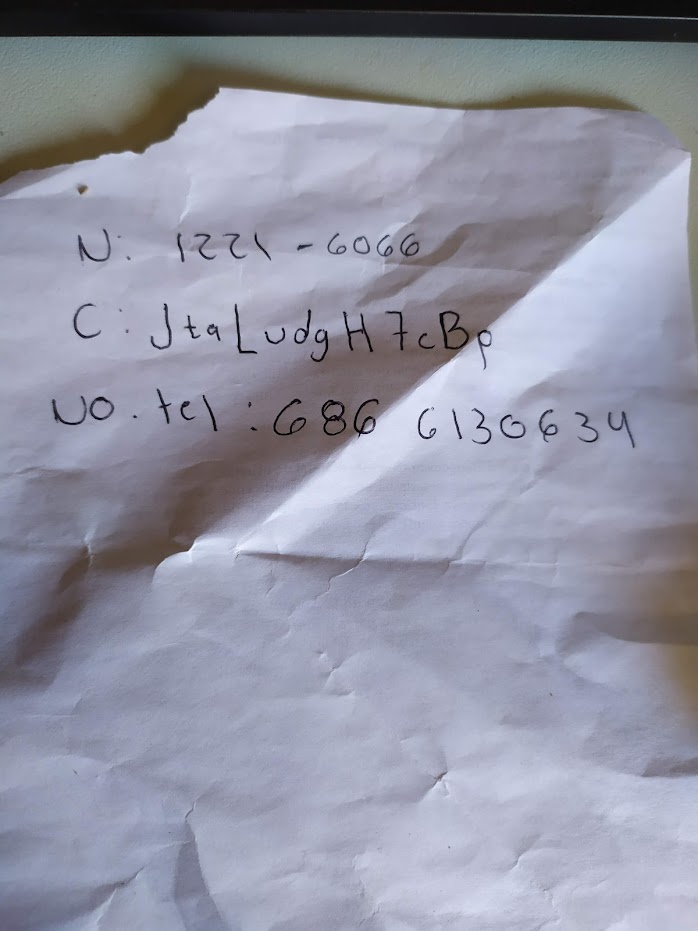 N: 1221-6066
C: JtaLudgH7cBp
No. tel: 686 6130634